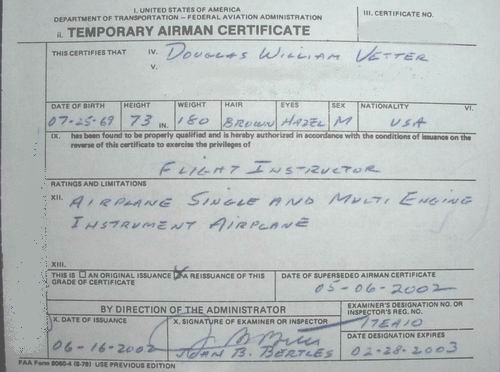 I. UNITED STATES OF AMERICA
DEPARTMENT OF TRANSPORTATION – FEDERAL AVIATION ADMINISTRATION
III. CERTIFICATE NO.
II. TEMPORARY AIRMAN CERTIFICATE
THIS CERTIFIES THAT IV. DOUGLAS WILLIAM VETTER
V.
DATE OF BIRTH HEIGHT WEIGHT HAIR EYES SEX NATIONALITY VI.
07-25-69 73 IN. 180 BROWN HAZEL M USA
IX. has been found to be properly qualified and is hereby authorized in accordance with the conditions of issuance on the
reverse of this certificate to exercise the privileges of
FLIGHT INSTRUCTOR
RATINGS AND LIMITATIONS
XII. AIRPLANE SINGLE AND MULTI ENGINE
INSTRUMENT AIRPLANE
XIII.
THIS IS AN ORIGINAL ISSUANCE A REISSUANCE OF THIS
GRADE OF CERTIFICATE
DATE OF SUPERSEDED AIRMAN CERTIFICATE
05-06-2002
BY DIRECTION OF THE ADMINISTRATOR
EXAMINER'S DESIGNATION NO. OR
INSPECTOR'S REG. NO.
X. DATE OF ISSUANCE
X. SIGNATURE OF EXAMINER OR INSPECTOR
06-16-2002
JOHN B. BERTLES
DATE DESIGNATION EXPIRES
02-28-2003
FAA Form 8060-4 (8-78) USE PREVIOUS EDITION